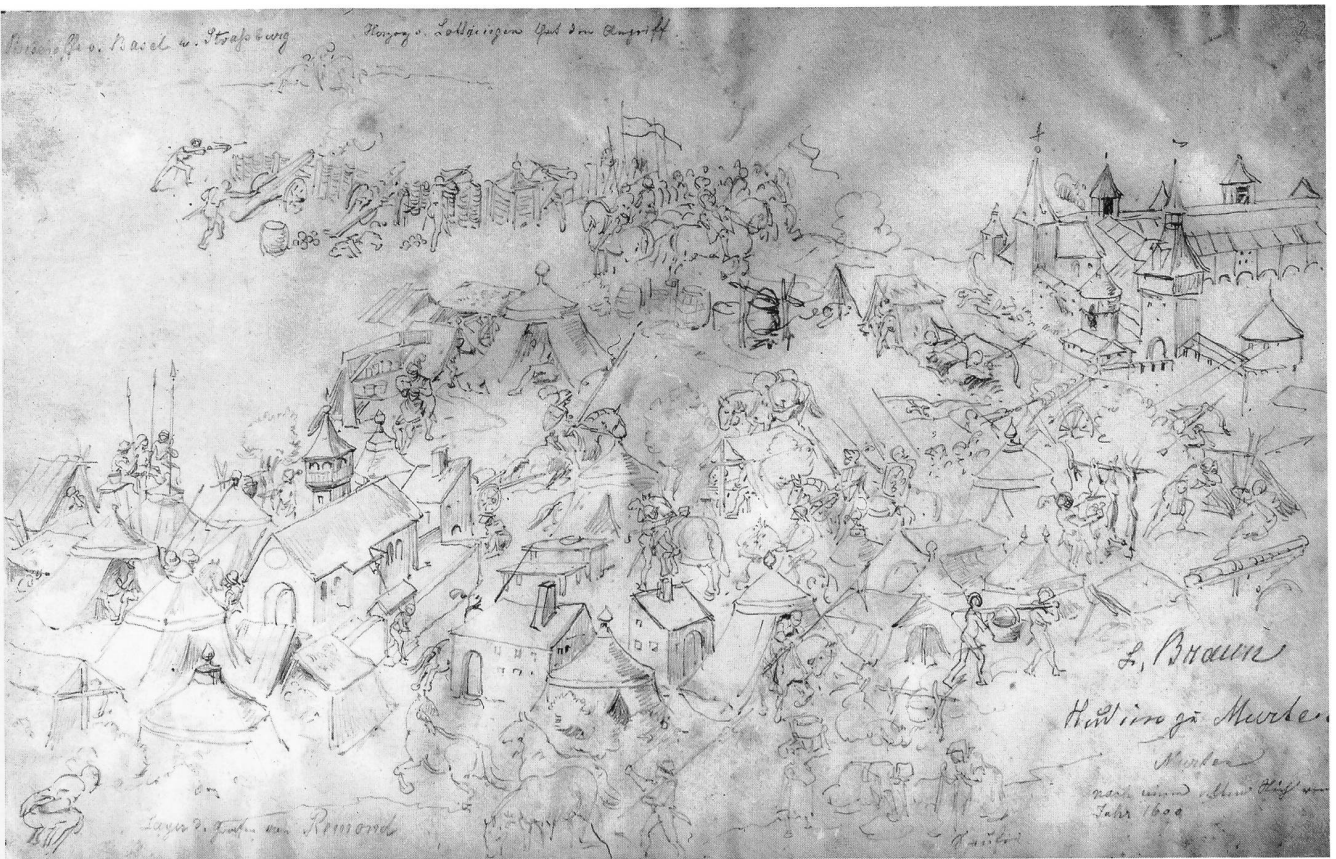 Bischöfe v. Basel u. Straßburg
Herzog v. Lothringen thut den Angriff.
L. Braun
Studien zu Murten
Murten
nach einem alten Stich vom
Jahr 1609
Lager d. Grafen von Romond